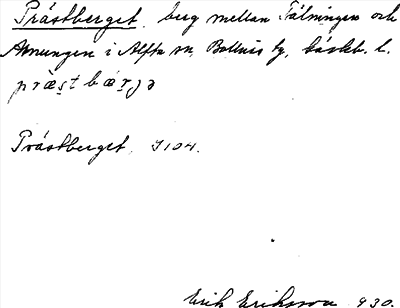 Prästberget, berg mellan Tälningen och
Amungen i Alfta sn, Bollnäs tg, Gävleb. l.
præstbærjə
Prästberget, J104.
Erik Eriksson 930.